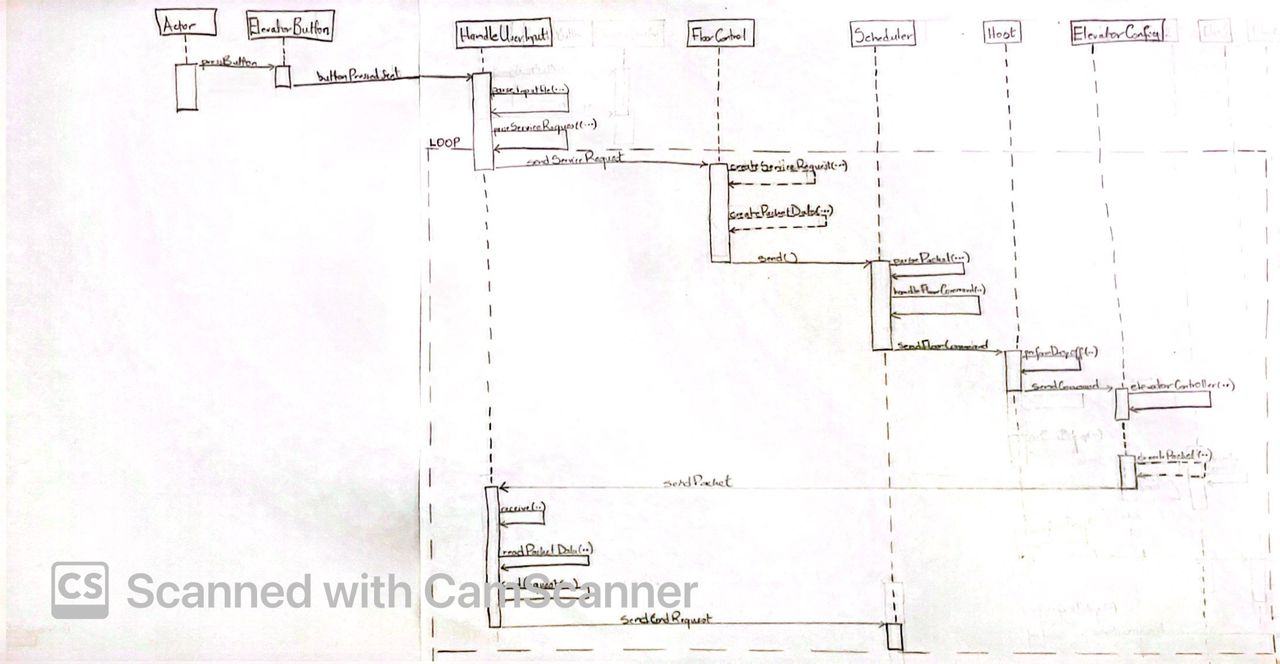 Actor
ElevatorButton
HandleUserInput
FloorControl
Scheduler
Host
ElevatorConfig
pressButton
buttonPressed sent
parseInputFile(...)
parseServiceRequest(...)
LOOP
sendServiceRequest
createServiceRequest(...)
createPacketData(...)
send()
parsePacket(...)
handleFloorCommand(..)
sendFloorCommand
sendCommand
elevatorController(..)
Packet(..)
sendPacket
receive(..)
readPacketData(..)
sendEndRequest
CS Scanned with CamScanner